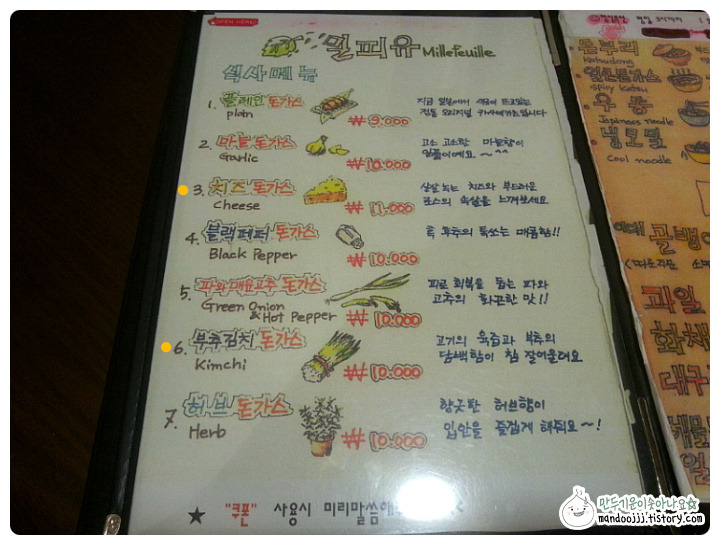 OPEN HERE!
밀피유 Millefeuille
식사메뉴
1. 플레인 돈가스
plain
₩ 9,000
2. 마늘 돈가스
Garlic
₩ 10,000
고소 고소한 마늘향이
일품이에요 ~ ^^
3. 치즈 돈가스
Cheese
₩ 11,000
살살 녹는 치즈와 부드러운
돈스의 속살을 느껴보세요
4. 블랙페퍼 돈가스
Black Pepper
₩ 10,000
흑 후추의 톡쏘는 매콤함!!
5. 파와매운고추 돈가스
Green Onion
& Hot Pepper
₩ 10,000
피로 회복을 돕는 파와
고추의 화끈한 맛!!
6. 부추김치 돈가스
Kimchi
₩ 10,000
고기의 육즙과 부추의
담백함이 참 잘어울려요
7. 허브 돈가스
Herb
₩ 10,000
향긋한 허브향이
입안을 즐겁게 해줘요~!
★ "쿠폰" 사용시 미리말씀해
돈부리
Katsudong
매운돈가스
spicy katsu
우동
Japanese noodle
냉모밀
Cool noodle
골뱅
과일
화채
대구
해물
만두기운이솟아나요☆
mandoojjj.tistory.com